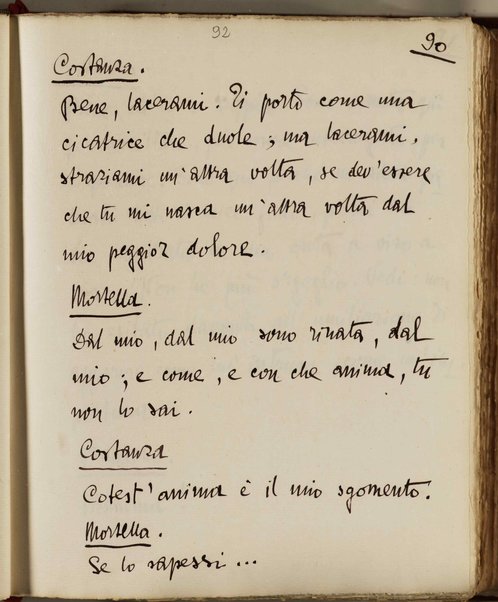 92
90
Costanza.
Bene, lacerami. Ti porto come una
cicatrice che duole; ma lacerami,
straziami un'altra volta, se dev'essere
che tu mi nasca un'altra volta dal
mio peggior dolore.
Mortella.
Dal mio, dal mio sono rinata, dal
mio; e come, e con che anima, tu
non lo sai.
Costanza
Cotest'anima è il mio sgomento.
Mortella.
Se lo sapessi...